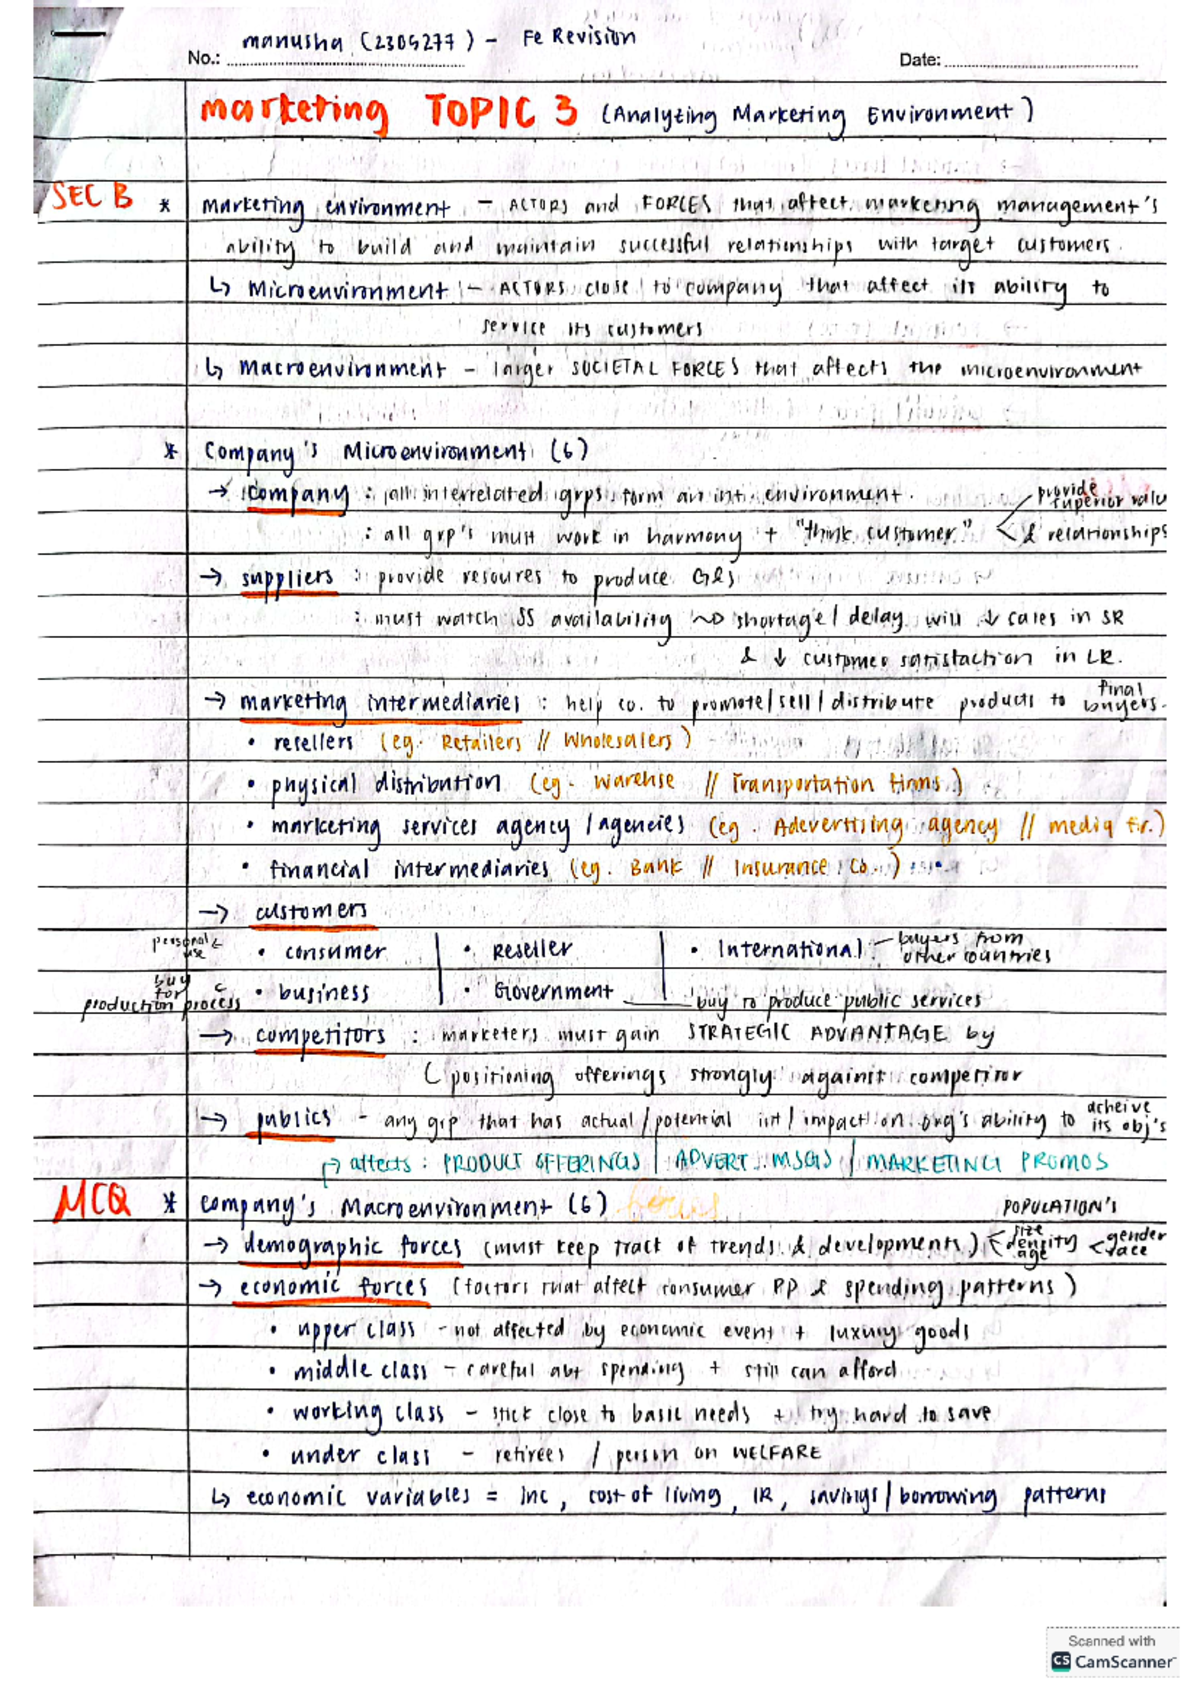 manusha (2305277) - Fe Revision
No.: Date:
marketing TOPIC 3 (Analyzing Marketing Environment)
SEC B * marketing environment - ACTORS and FORCES that affect marketing management's
ability to build and maintain successful relationships with target customers.
↳ Microenvironment - ACTORS close to company that affect its ability to
service its customers
↳ Macroenvironment - larger SOCIETAL FORCES that affects the microenvironment
* Company's Microenvironment (6)
→ company : all interrelated grps form an int. environment.
provide superior valu
: all grp's must work in harmony + "think customer" & relationships
→ suppliers : provide resoures to produce G&S
: must watch SS availability ~> shortage / delay will ↓ sales in SR
& ↓ customer satisfaction in LR.
→ marketing intermediaries : help co. to promote/sell/distribute products to final buyers.
• resellers (eg. Retailers // Wholesalers)
• physical distribution (eg. warehse // Transportation firms)
• marketing services agency / agencies (eg. Adevertising agency // media fir.)
• financial intermediaries (eg. Bank // Insurance Co.)
→ customers
personal use ← • consumer • Reseller • International - buyers from other countries
buy for production process • business • Government buy to produce public services
→ competitors : marketers must gain STRATEGIC ADVANTAGE by
( positioning offerings strongly against competitor
→ publics - any grp that has actual/potential int / impact on org's ability to acheive its obj's
↱ affects : PRODUCT OFFERINGS / ADVERT. MSGS / MARKETING PROMOS
MCQ * company's Macroenvironment (6) POPULATION'S
→ demographic forces (must keep track of trends & developments) size density age gender race
→ economic forces (factors that affect consumer PP & spending patterns)
• upper class - not affected by economic event + luxury goods
• middle class - careful abt spending + still can afford
• working class - stick close to basic needs + try hard to save
• under class - retirees / person on WELFARE
↳ economic variables = inc, cost of living, IR, savings/borrowing patterns
Scanned with
CS CamScanner